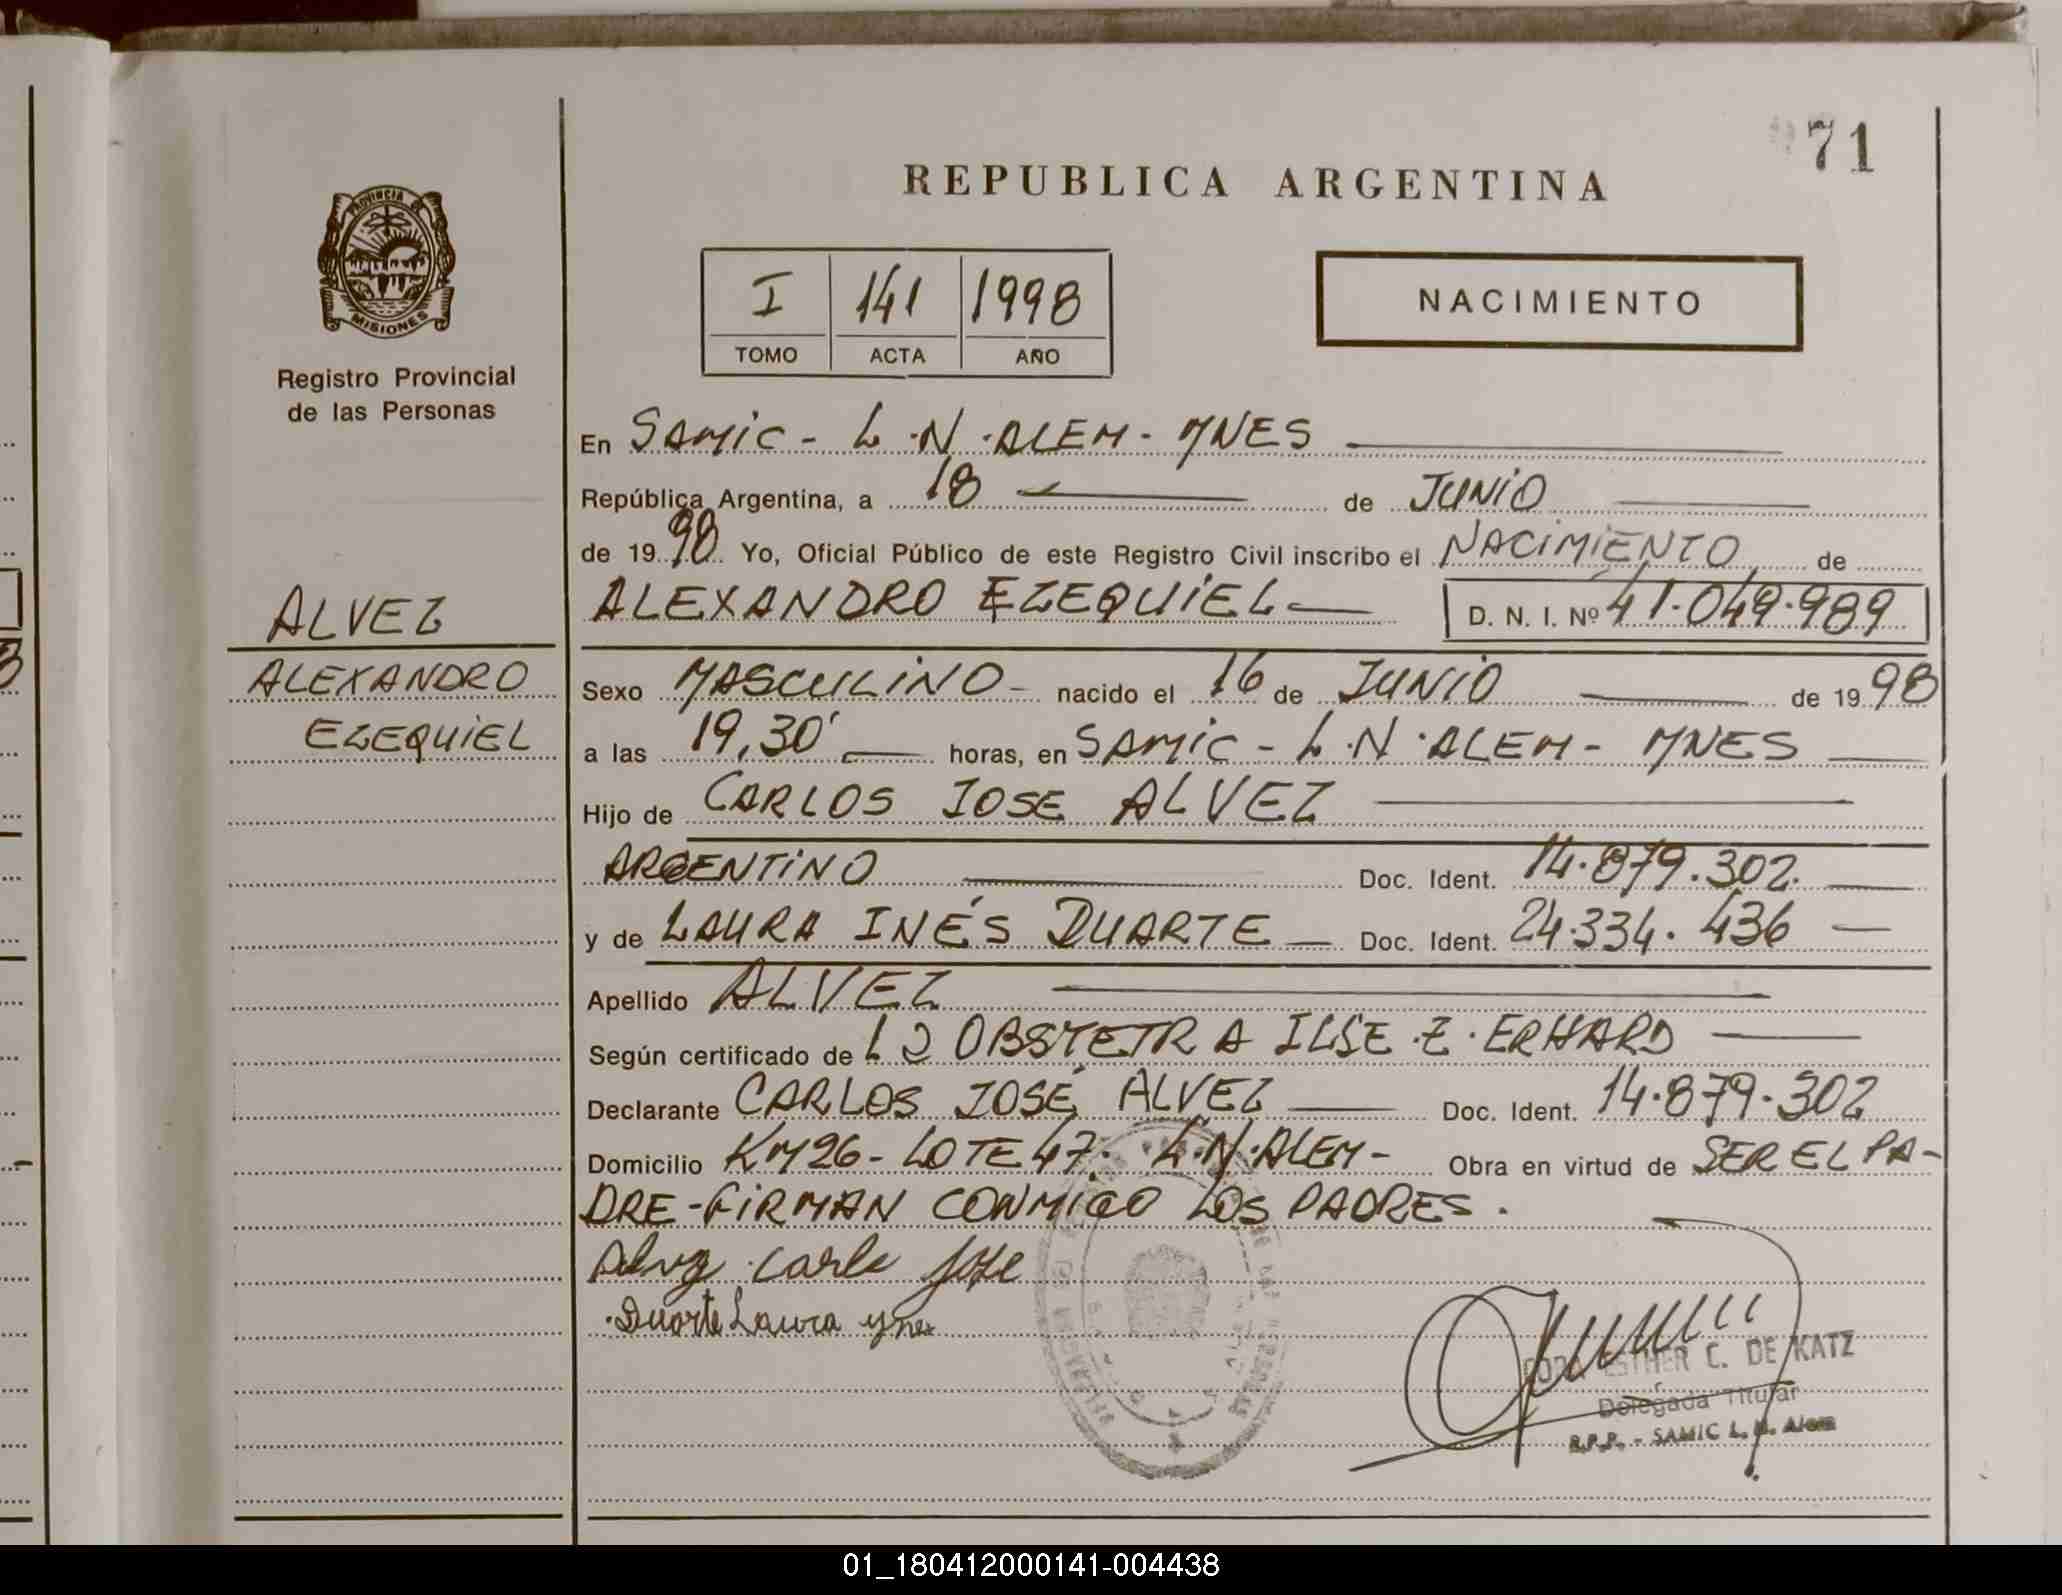 71
REPUBLICA ARGENTINA
PROVINCIA DE
MISIONES
Registro Provincial
de las Personas
I 141 1998
TOMO ACTA AÑO
NACIMIENTO
En SAMIC - L.N.ALEM - MNES
República Argentina, a 18 de JUNIO
de 19 98 Yo, Oficial Público de este Registro Civil inscribo el NACIMIENTO de
ALEXANDRO EZEQUIEL D. N. I. Nº 41.049.989
ALVEZ
ALEXANDRO
EZEQUIEL
Sexo MASCULINO - nacido el 16 de JUNIO de 19 98
a las 19,30' horas, en SAMIC - L.N.ALEM - MNES
Hijo de CARLOS JOSE ALVEZ
ARGENTINO Doc. Ident. 14.879.302.
y de LAURA INÉS DUARTE Doc. Ident. 24.334.436
Apellido ALVEZ
Según certificado de OBSTETRA ILSE.Z.ERHARD
Declarante CARLOS JOSÉ ALVEZ Doc. Ident. 14.879.302
Domicilio KM26 - LOTE 47. L.N.ALEM - Obra en virtud de SER EL PA-
DRE - FIRMAN CONMIGO LOS PADRES.
Carlo Jose
Duarte Laura ynes
ESTHER C. DE KATZ
Delegada Titular
R.P.P. - SAMIC L. N. Alem
01_180412000141-004438